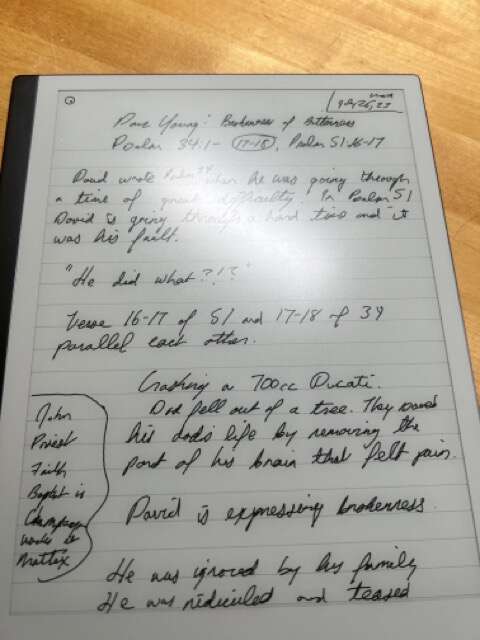 Dave Young: Brokenness of Bitterness
Psalm 34:1- 17-18, Psalm 51:16-17
David wrote Psalm 34 when he was going through
a time of great difficulty. In Psalm 51
David is going through a hard time and it
was his fault.
"He did what?!?"
Verse 16-17 of 51 and 17-18 of 34
parallel each other.
Crashing a 700cc Ducati.
Dad fell out of a tree. They saved
his dad's life by removing the
part of his brain that felt pain.
David is expressing brokenness.
He was ignored by his family
He was ridiculed and teased
John
Priest
Faith
Baptist in